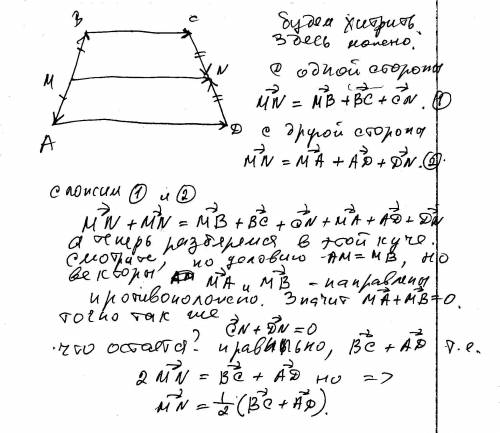 B C
M N
A D
Будем хитрить.
Здесь можно.
С одной стороны
MN = MB + BC + CN. ①
с другой стороны
MN = MA + AD + DN. ②
сложим ① и ②
MN + MN = MB + BC + CN + MA + AD + DN
а теперь разберемся в этой куче.
Смотрите, по условию AM = MB, но
векторы MA и MB - направлены
противоположно. Значит MA + MB = 0.
точно так же
CN + DN = 0
что остается? правильно, BC + AD т.е.
2 MN = BC + AD но =>
MN = 1/2 (BC + AD).